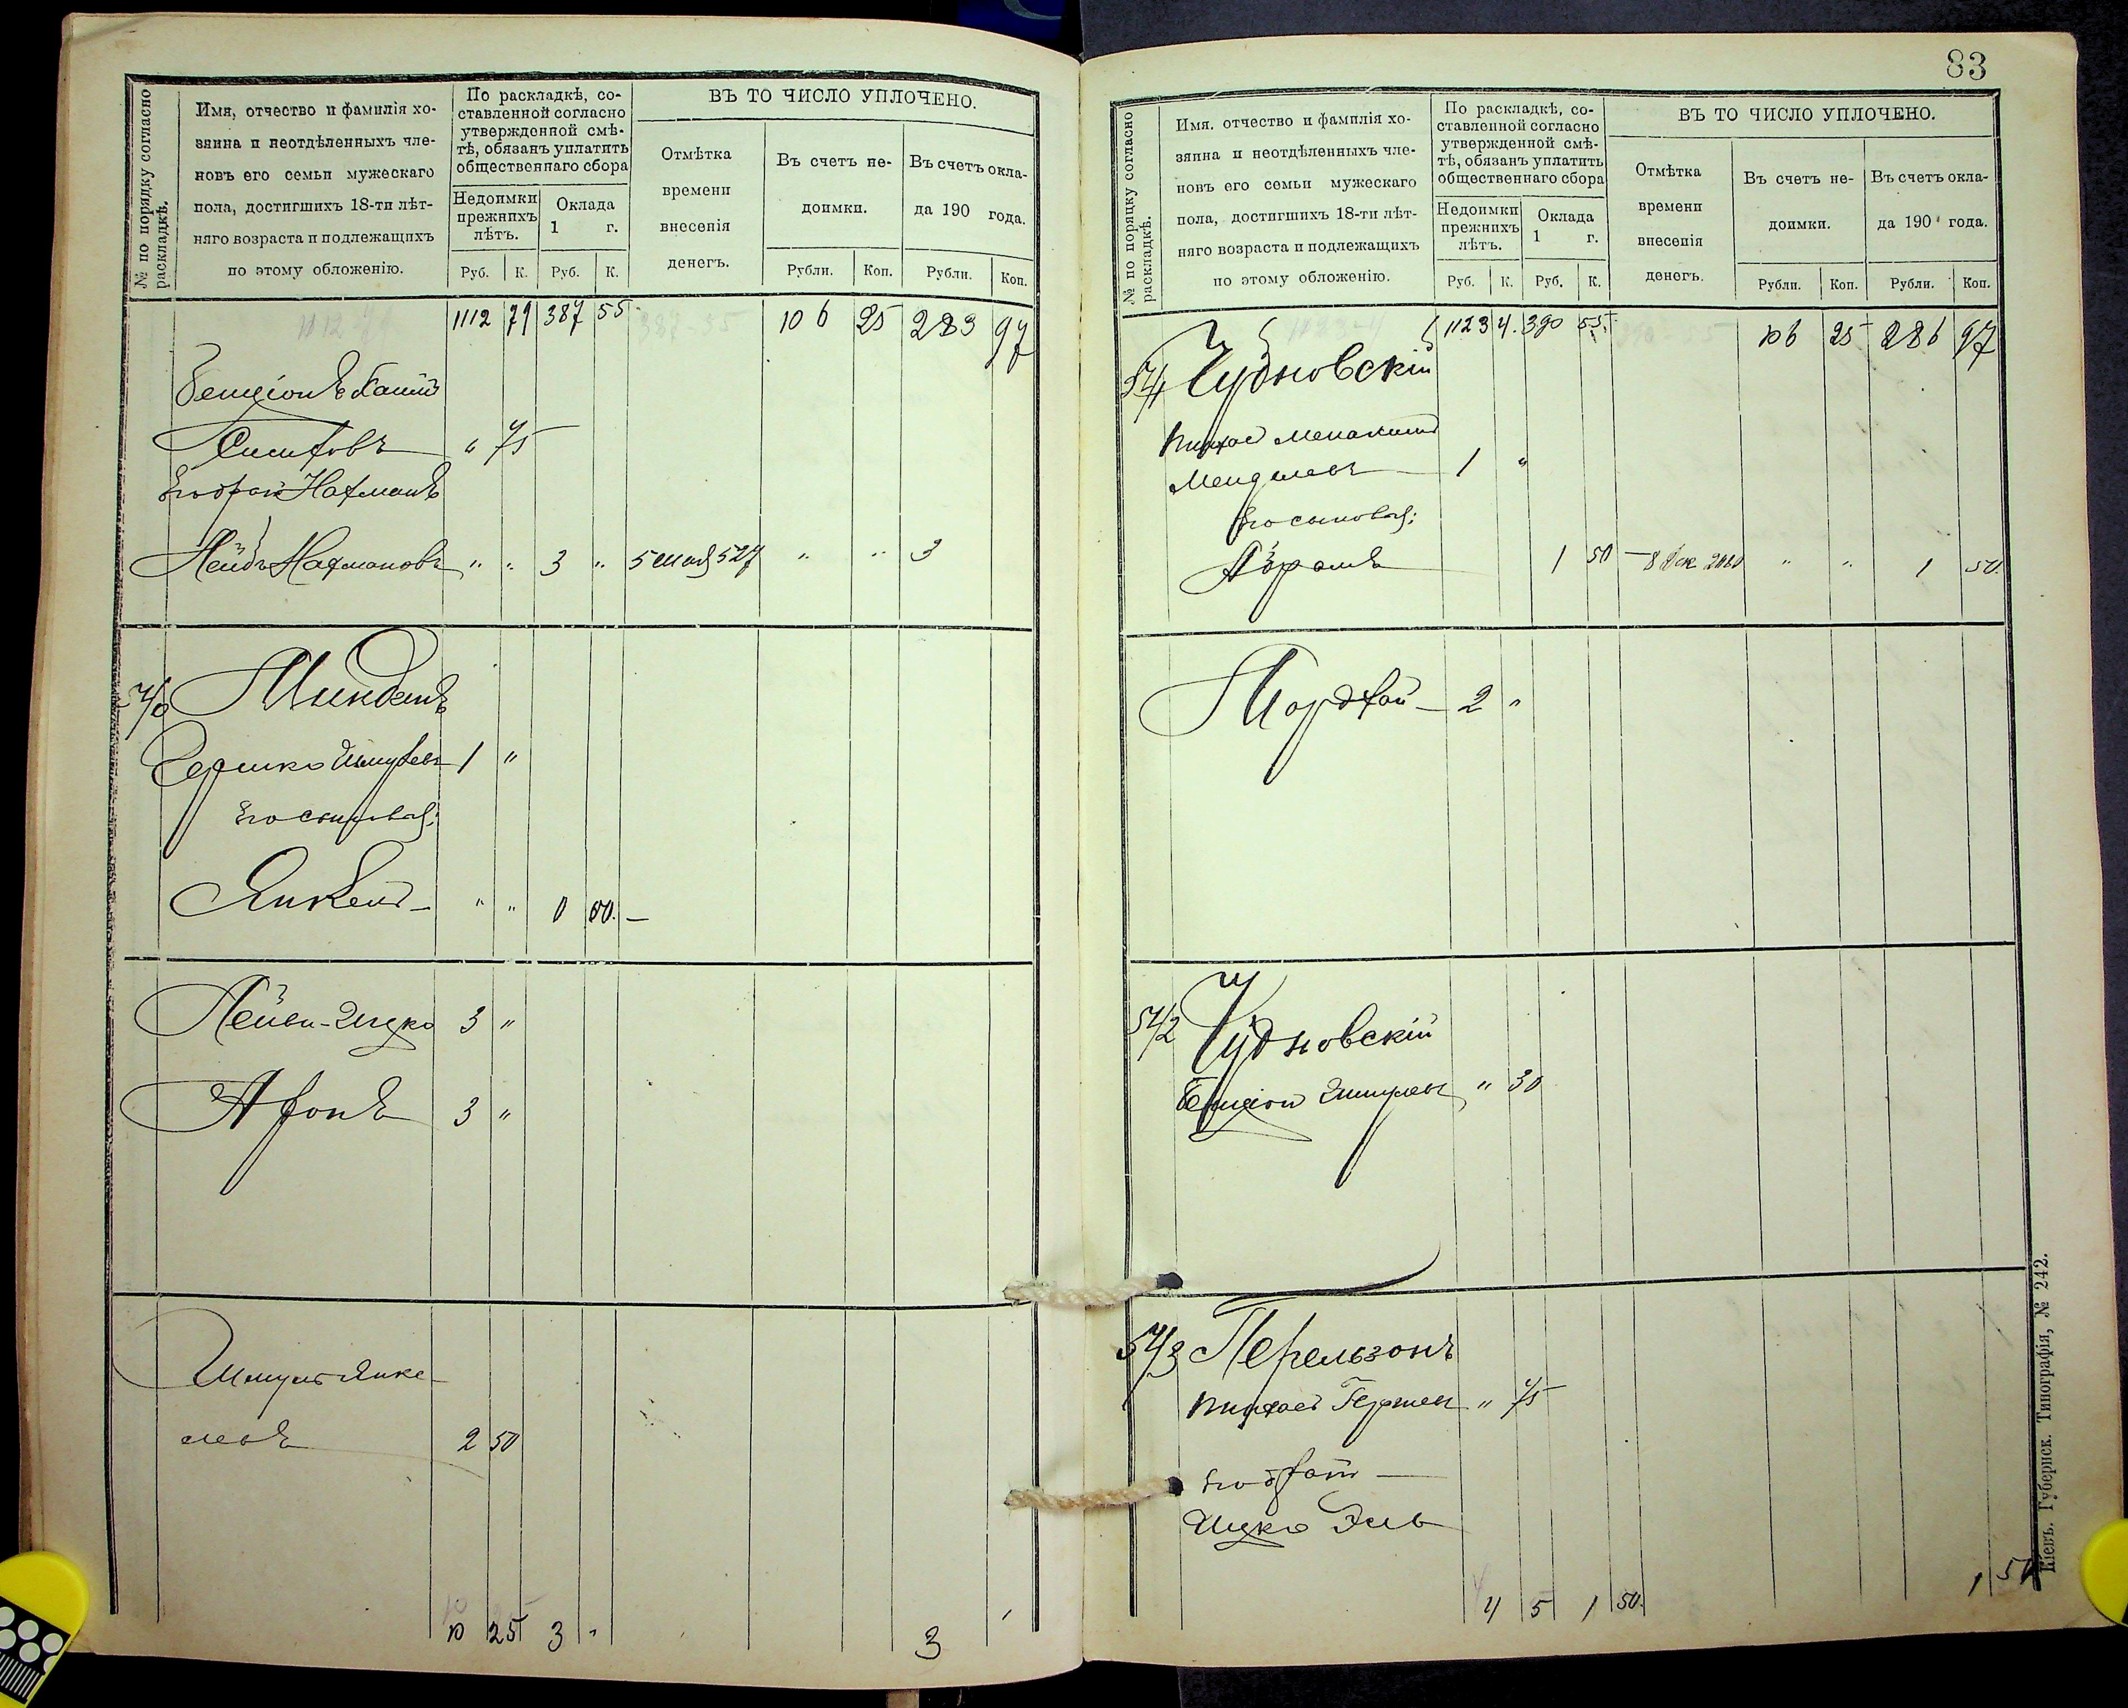 № по порядку согласно раскладкѣ.
Имя, отчество и фамилія хо-
зяина и неотдѣленныхъ чле-
новъ его семьи мужескаго
пола, достигшихъ 18-ти лѣт-
няго возраста и подлежащихъ
по этому обложенію.
По раскладкѣ, со-
ставленной согласно
утвержденной смѣ-
тѣ, обязанъ уплатить
общественнаго сбора
Недоимки
прежнихъ
лѣтъ.
Оклада
1 г.
Руб. К. Руб. К.
ВЪ ТО ЧИСЛО УПЛОЧЕНО.
Отмѣтка
времени
внесенія
денегъ.
Въ счетъ не-
доимки.
Рубли. Коп.
Въ счетъ окла-
да 190 года.
Рубли. Коп.
1112 79 387 55 106 25 283 97
" 75
Нахманъ
Лейбъ Нахмановъ " " 3 " 5 527 " " 3
540
Гершко 1 "
Его сыновья:
Янкель - " " 0 00. -
Лейви-Ицко 3 "
Аронъ 3 "
Шмуль Янке-
левъ 2 50
10 25 3 " 3
83
№ по порядку согласно раскладкѣ.
Имя, отчество и фамилія хо-
зяина и неотдѣленныхъ чле-
новъ его семьи мужескаго
пола, достигшихъ 18-ти лѣт-
няго возраста и подлежащихъ
по этому обложенію.
По раскладкѣ, со-
ставленной согласно
утвержденной смѣ-
тѣ, обязанъ уплатить
общественнаго сбора
Недоимки
прежнихъ
лѣтъ.
Оклада
1 г.
Руб. К. Руб. К.
ВЪ ТО ЧИСЛО УПЛОЧЕНО.
Отмѣтка
времени
внесенія
денегъ.
Въ счетъ не-
доимки.
Рубли. Коп.
Въ счетъ окла-
да 190 года.
Рубли. Коп.
1123 4. 390 55 106 25 286 97
541 Чудновскій
Пинхас
Менделевъ 1 "
Его сыновья:
Абрамъ 1 50 - 8 " " 1 50.
Мордхай - 2 "
542 Чудновскій
" 30
543 Перельзонъ
Пинхасъ " 75
Его братъ -
Ицко Эль
4 5 1 50. 1 50
Кіевъ. Губернск. Типографія, № 242.